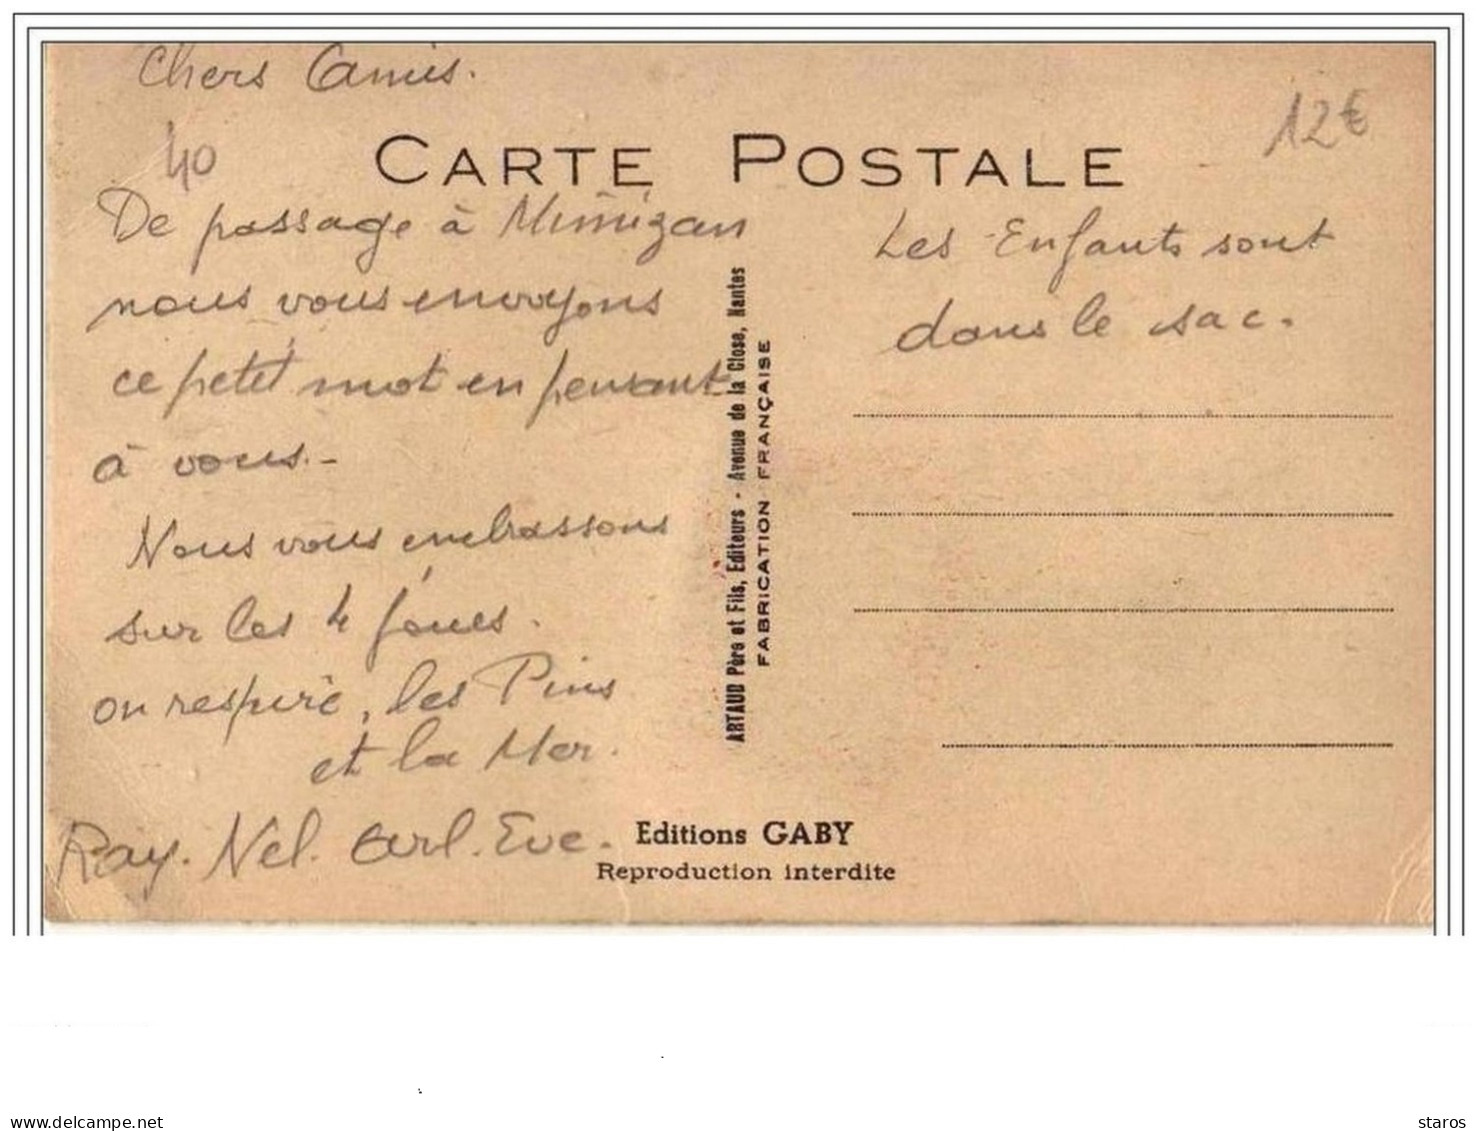 Chers Amis.
40
12€
CARTE POSTALE
De passage à Mimizan
nous vous envoyons
ce petit mot en pensant
à vous.-
Nous vous embrassons
sur les 4 joues.
on respire, les Pins
et la Mer.
Ray. Nel. Eve.
Les Enfants sont
dans le sac.
ARTAUD Père et Fils, Editeurs - Avenue de la Close, Nantes
FABRICATION FRANÇAISE
Editions GABY
Reproduction interdite
delcampe.net
staros